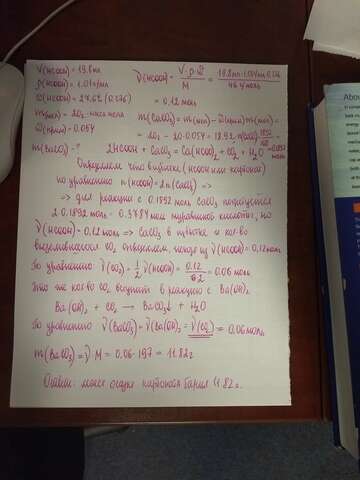 V(HCOOH) = 19.8мл
ρ(HCOOH) = 1.01г/мл
ω(HCOOH) = 27.6% (0.276)
m(мел) = 20г
ω(прим) = 0.054
m(BaCO₃) - ?
ν(HCOOH) = V·ρ·ω / M = 19.8мл·1.01г/мл·0.276 / 46 г/моль =
= 0.12 моль
m(CaCO₃) = m(мел) - m(прим) =
= 20г - 20·0.054 = 18.92
2HCOOH + CaCO₃ = Ca(HCOO)₂ + CO₂ + H₂O
Определяем что в избытке (HCOOH или карбонат)
по уравнению n(HCOOH) = 2n(CaCO₃) =>
=> для реакции с 0.1892 моль CaCO₃ потребуется
2·0.1892 моль = 0.3784 моль муравьиной кислоты, но
ν(HCOOH) = 0.12 моль => CaCO₃ в избытке и кол-во
выделившегося CO₂ определяем, исходя из ν(HCOOH) = 0.12 моль
По уравнению ν(CO₂) = 1/2 ν(HCOOH) = 0.12/2 = 0.06 моль
Это же кол-во CO₂ вступит в реакцию с Ba(OH)₂
Ba(OH)₂ + CO₂ → BaCO₃↓ + H₂O
По уравнению ν(BaCO₃) = ν(Ba(OH)₂ = ν(CO₂) = 0.06 моль
m(BaCO₃) = ν·M = 0.06·197 = 11.82г
Ответ: масса осадка карбоната бария 11.82г.